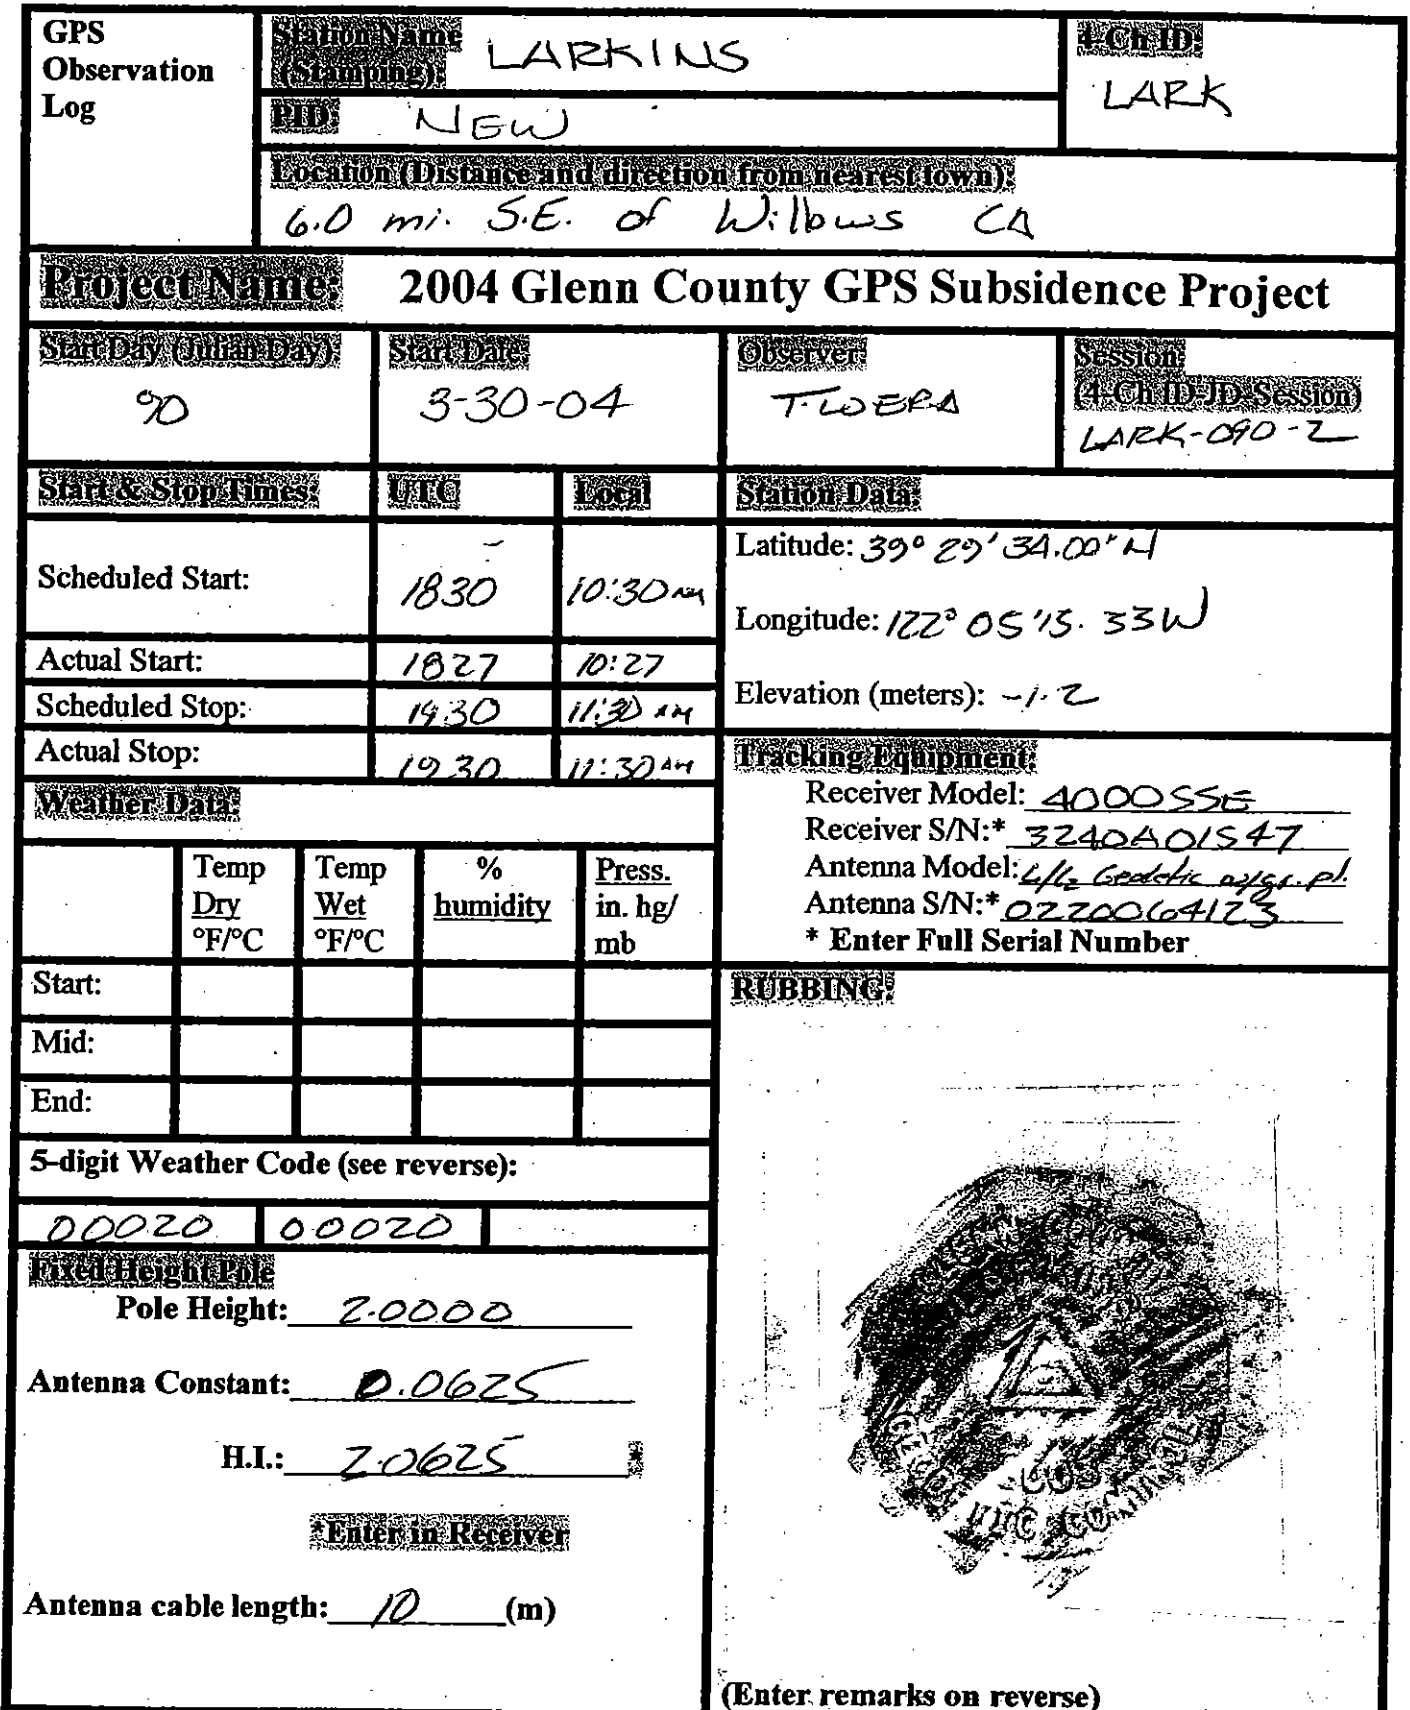 GPS
Observation
Log
Station Name
(Stamping):
LARKINS
4-Ch ID:
LARK
PID: NEW
Location (Distance and direction from nearest town):
6.0 mi. S.E. of Willows CA
Project Name: 2004 Glenn County GPS Subsidence Project
Start Day (Julian Day):
90
Start Date:
3-30-04
Observer:
Session:
(4-Ch ID-JD-Session)
LARK-090-2
Start & Stop Times: UTC Local
Scheduled Start: 1830 10:30 AM
Actual Start: 1827 10:27
Scheduled Stop: 1930 11:30 AM
Actual Stop: 1930 11:30 AM
Station Data:
Latitude: 39° 29' 34.00" N
Longitude: 122° 05' 15.33 W
Elevation (meters): -1.2
Tracking Equipment:
Receiver Model: 4000SSE
Receiver S/N:* 3240A01547
Antenna Model: L1/L2 Geodetic w/gr. pl.
Antenna S/N:* 0220064123
* Enter Full Serial Number
Weather Data:
Temp
Dry
°F/°C
Temp
Wet
°F/°C
%
humidity
Press.
in. hg/
mb
Start:
Mid:
End:
5-digit Weather Code (see reverse):
00020 00020
Fixed Height Pole
Pole Height: 2.0000
Antenna Constant: 0.0625
H.I.: 2.0625 *
*Enter in Receiver
Antenna cable length: 10 (m)
RUBBING:
(Enter remarks on reverse)